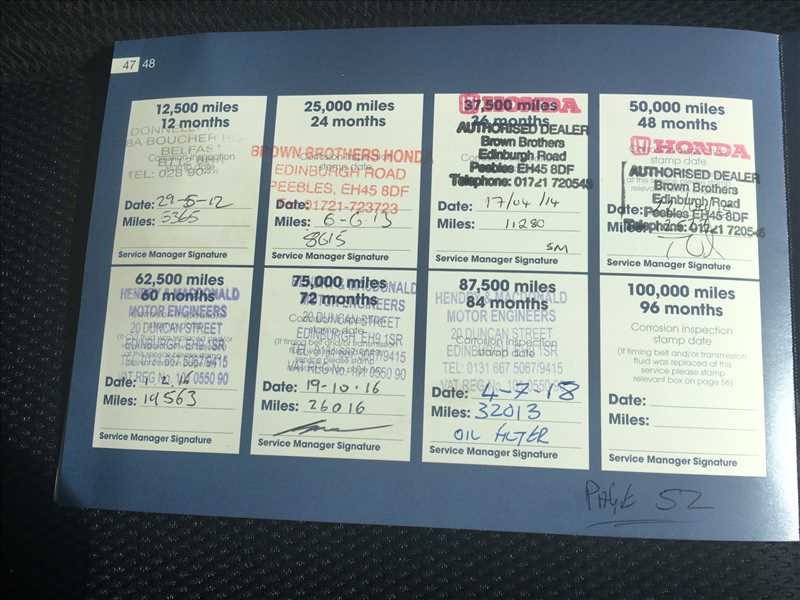 47 48
12,500 miles
12 months
DONNELL
BOUCHER
BELFAST
TEL: 028 90
Date: 29-5-12
Miles: 5365
Service Manager Signature
25,000 miles
24 months
BROWN BROTHERS HONDA
EDINBURGH ROAD
PEEBLES, EH45 8DF
01721-723723
Date:
Miles: 6-6-13
8615
Service Manager Signature
HONDA
37,500 miles
36 months
AUTHORISED DEALER
Brown Brothers
Edinburgh Road
Peebles EH45 8DF
Telephone: 01721 720545
Date: 17/04/14
Miles: 11280
SM
Service Manager Signature
50,000 miles
48 months
HONDA
stamp date
AUTHORISED DEALER
Brown Brothers
Edinburgh Road
Peebles EH45 8DF
Telephone: 01721 720545
Date:
Miles:
Service Manager Signature
62,500 miles
60 months
HENDRY & MACDONALD
MOTOR ENGINEERS
20 DUNCAN STREET
EDINBURGH EH9 1SR
TEL: 0131 667 5067/9415
VAT REG No. 0550 90
Date: 2 16
Miles: 19563
Service Manager Signature
75,000 miles
72 months
MACDONALD
MOTOR ENGINEERS
20 DUNCAN STREET
EDINBURGH EH9 1SR
5067/9415
VAT REG No. 0550 90
Date: 19-10-16
Miles: 26016
Service Manager Signature
87,500 miles
84 months
HENDRY & MACDONALD
MOTOR ENGINEERS
20 DUNCAN STREET
Corrosion inspection
EDINBURGH EH9 1SR
stamp date
TEL: 0131 667 5067/9415
VAT REG No. 0550 90
Date: 4-7-18
Miles: 32013
OIL FILTER
Service Manager Signature
100,000 miles
96 months
Corrosion inspection
stamp date
(If timing belt and/or transmission
fluid was replaced at this
service please stamp
relevant box on page 56)
Date:
Miles:
Service Manager Signature
PAGE 52